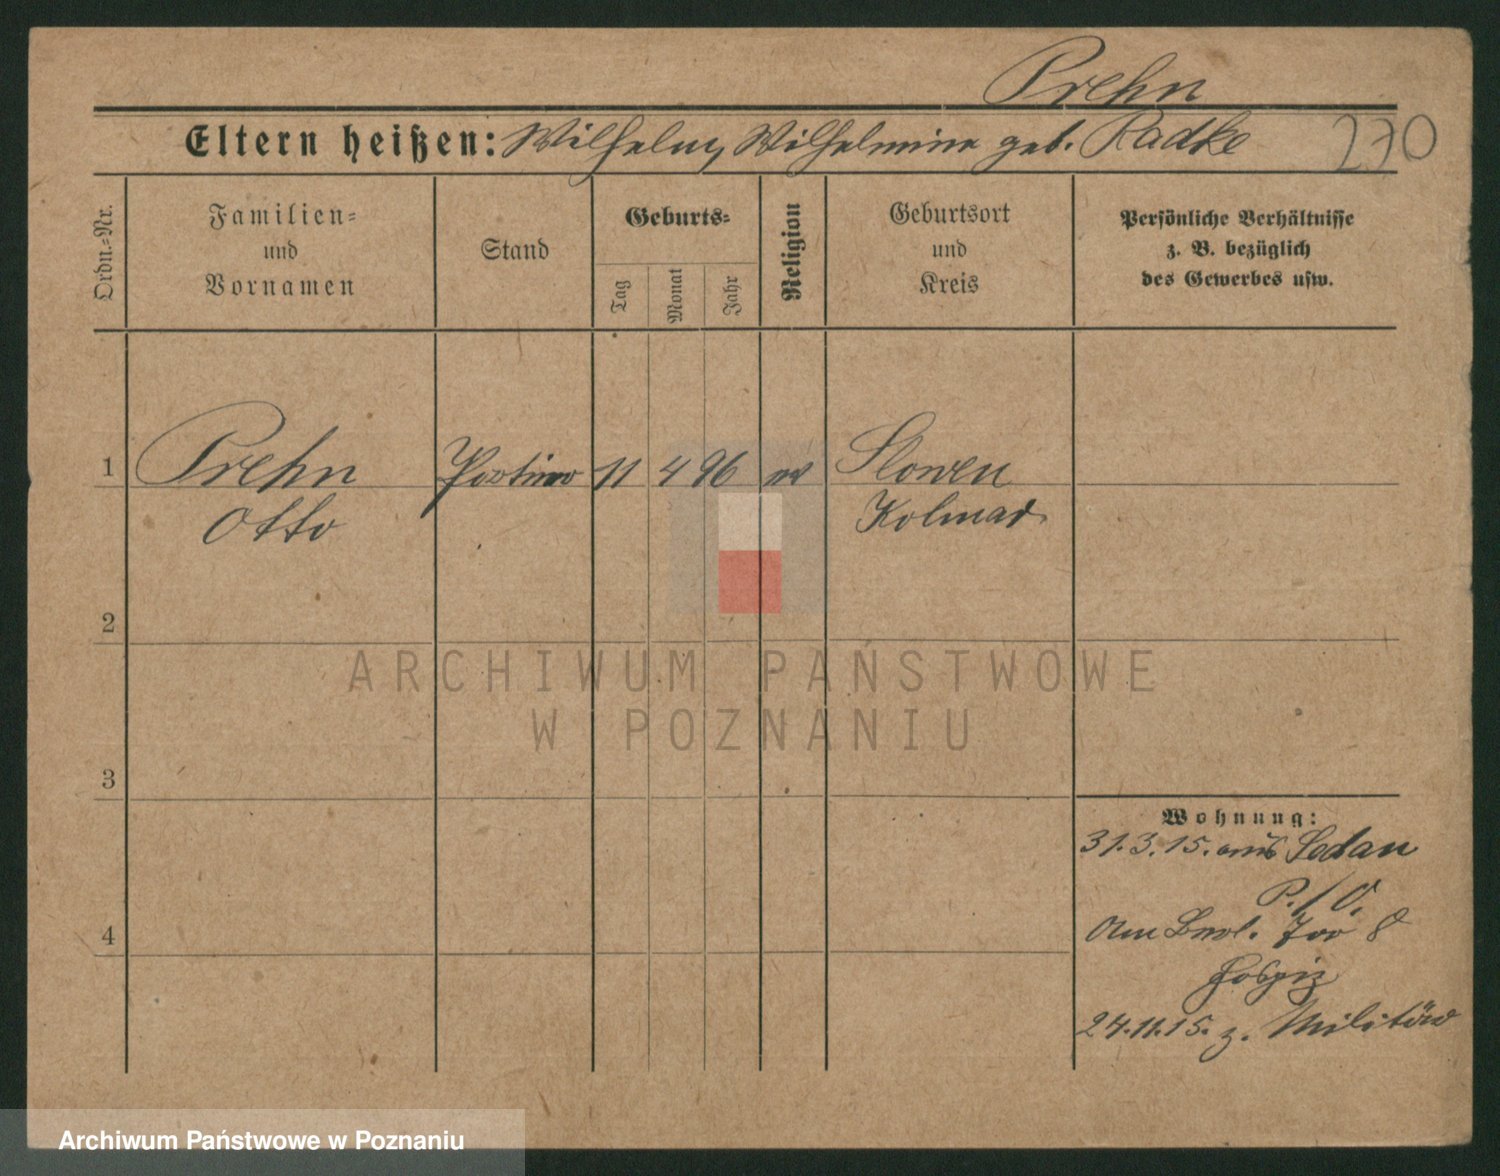 Prehn
Eltern heißen: Wilhelm, Wilhelmine geb. Radke
270
Ordn.-Nr.
Familien-
und
Vornamen
Stand
Geburts-
Tag
Monat
Jahr
Religion
Geburtsort
und
Kreis
Persönliche Verhältnisse
z. B. bezüglich
des Gewerbes usw.
1
Prehn
Otto
Portier
11
4
96
ev
Slowen
Kolmar
2
3
4
Wohnung:
31.3.15. aus Sedan
P./O.
Am Berl. Tor 8
Hospiz
24.11.15. z. Militär
ARCHIWUM PAŃSTWOWE
W POZNANIU
Archiwum Państwowe w Poznaniu